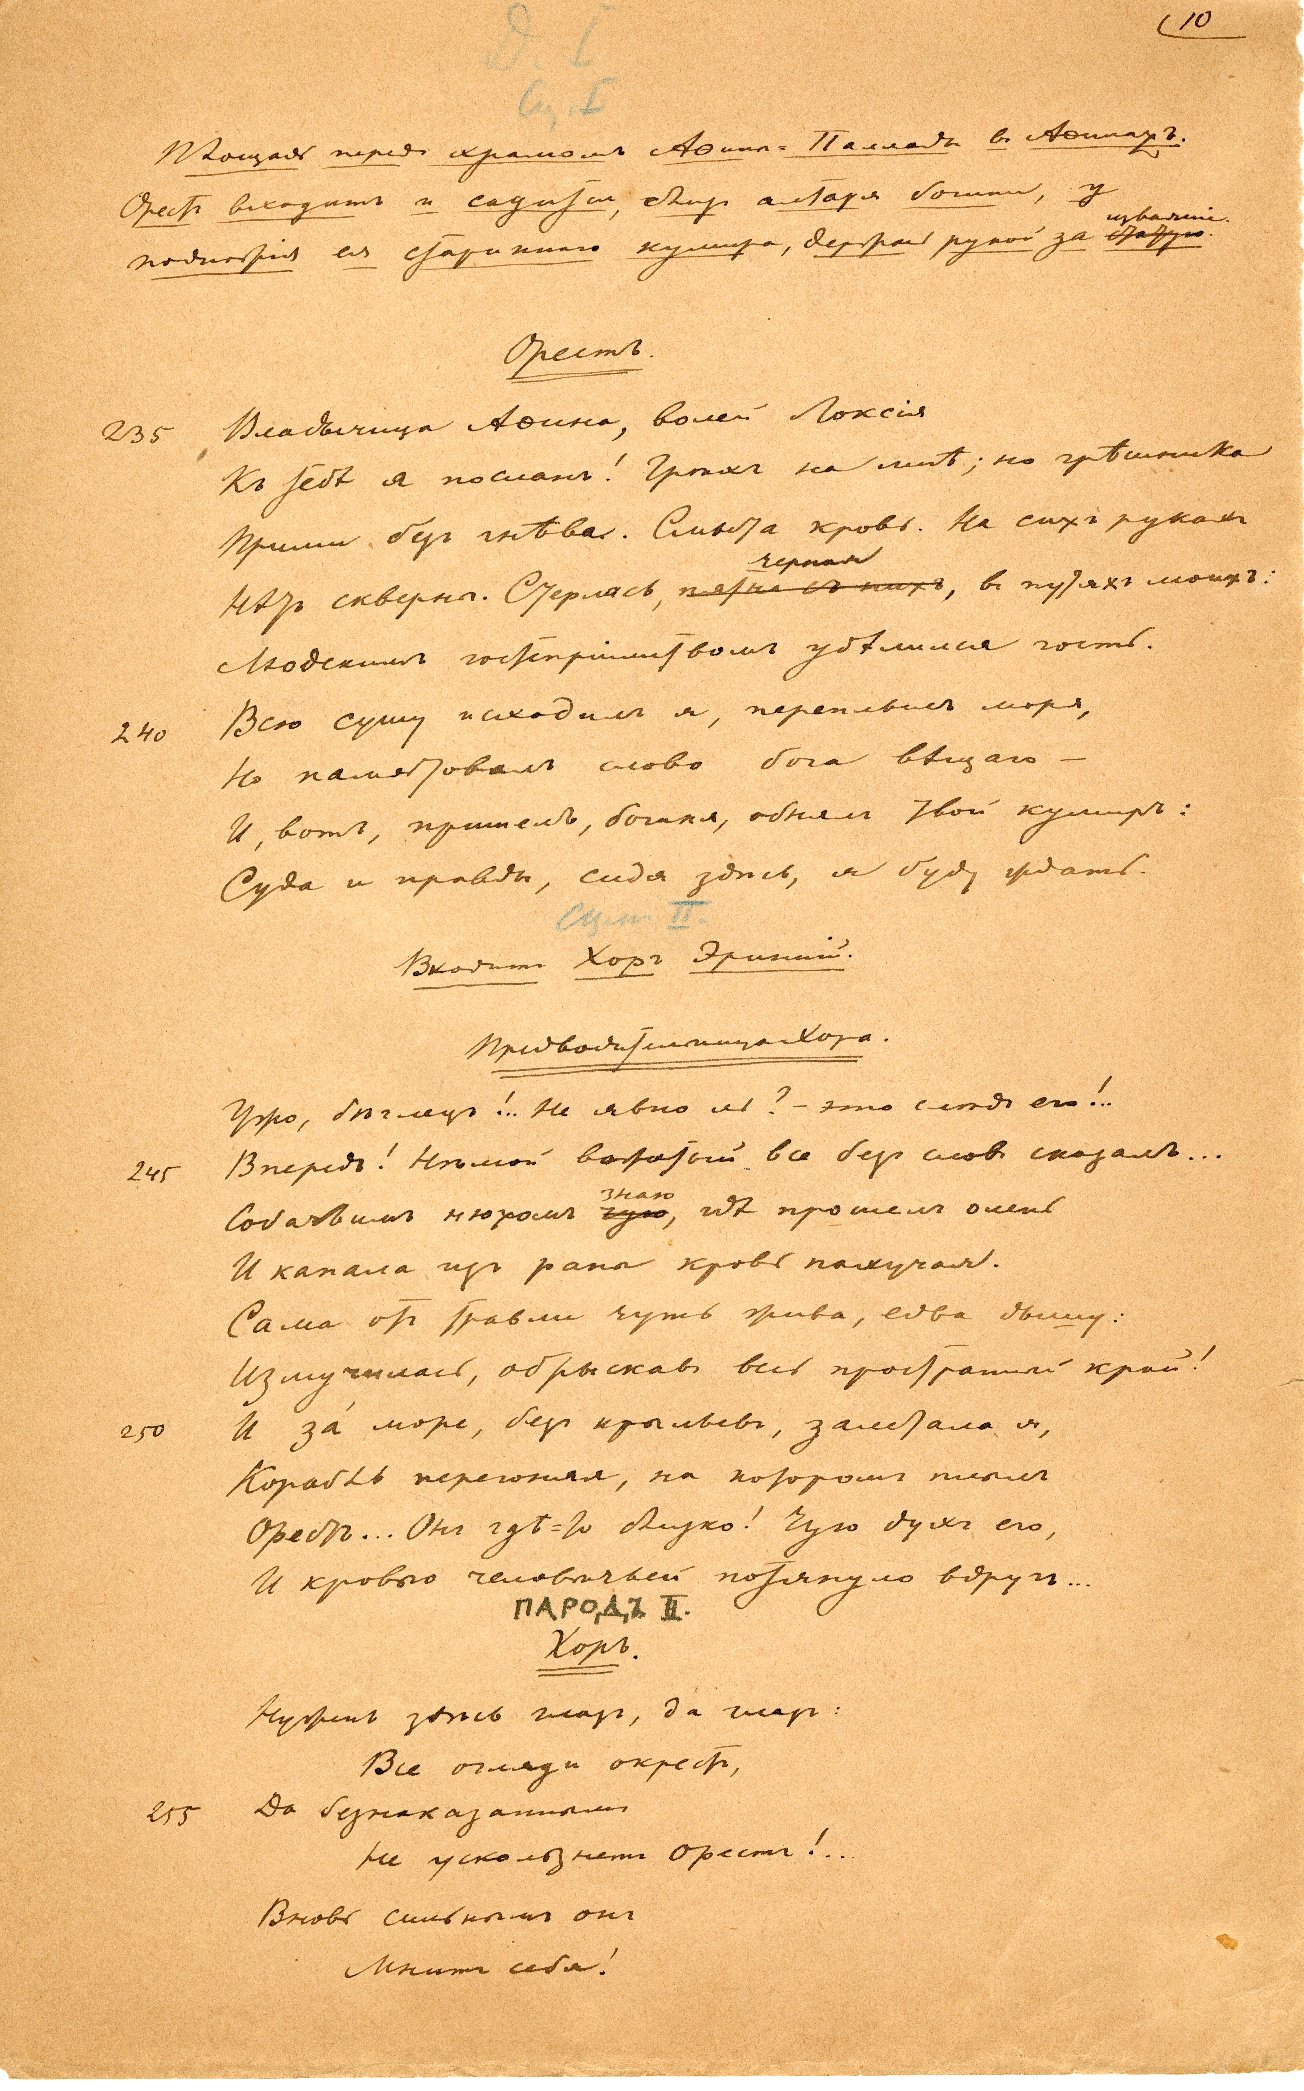 10
Д. I
Сц. I
Площадь передъ храмомъ Аѳины-Паллады въ Аѳинахъ.
Орестъ входитъ и садится, близъ алтаря богини, у
подножія ея стариннаго кумира, держась рукой за статую. изваяніе.
Орестъ.
235 Владычица Аѳина, волей Локсія
Къ тебѣ я посланъ! Грѣхъ на мнѣ; но грѣшника
Прими безъ гнѣва. Смыта кровь. На сихъ рукахъ
Нѣтъ скверны. Стерлась, пятна съ нихъ черная, въ путяхъ моихъ:
Людскимъ гостепріимствомъ убѣлился гость.
240 Всю сушу исходилъ я, переплылъ моря,
Но памятовалъ слово бога вѣщаго —
И, вотъ, пришелъ, богиня, обнялъ твой кумиръ:
Суда и правды, сидя здѣсь, я буду ждать.
Сцена II.
Входитъ Хоръ Эриній.
Предводительница Хора.
Угро, бѣглецъ!.. Не явно ль? — это слѣдъ его!..
245 Впередъ! Нѣмой вожатый все безъ словъ сказалъ...
Собачьимъ нюхомъ чую знаю, гдѣ прошелъ олень
И капала изъ раны кровь пахучая.
Сама отъ травли чуть жива, едва дышу:
Измучилась, обрыскавъ весь пространный край!
250 И за́ море, безъ крыльевъ, залетала я,
Корабль перегоняя, на которомъ плылъ
Орестъ... Онъ гдѣ-то близко! Чую духъ его,
И кровью человѣчьей потянуло вдругъ...
ПАРОДЪ II.
Хоръ.
Нуженъ здѣсь глазъ, да глазъ:
Все огляди окрестъ,
255 Да безнаказаннымъ
Не ускользнетъ Орестъ!..
Вновь сильнымъ онъ
Мнитъ себя!